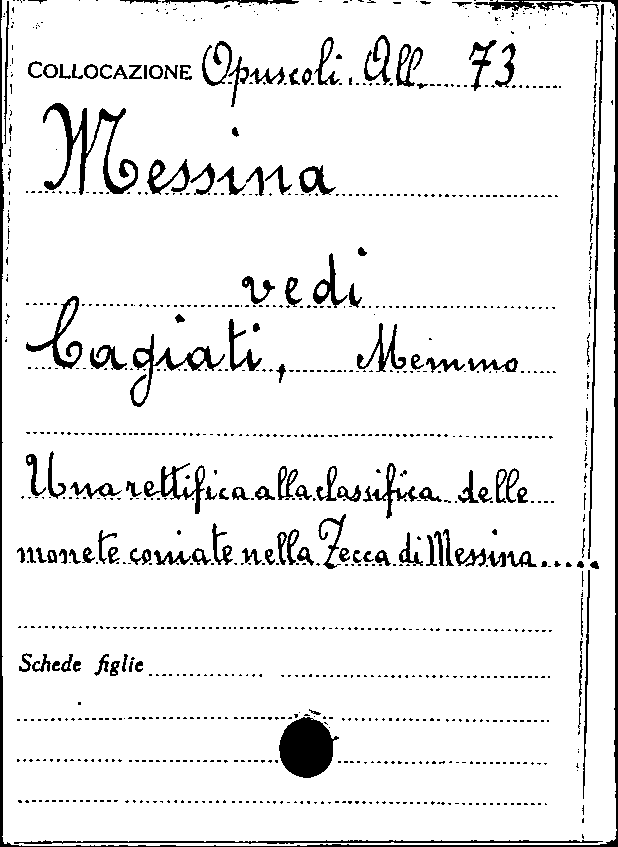 COLLOCAZIONE Opuscoli. All. 73
Messina
vedi
Cagiati, Memmo
Una rettifica alla classifica delle
monete coniate nella Zecca di Messina.....
Schede figlie